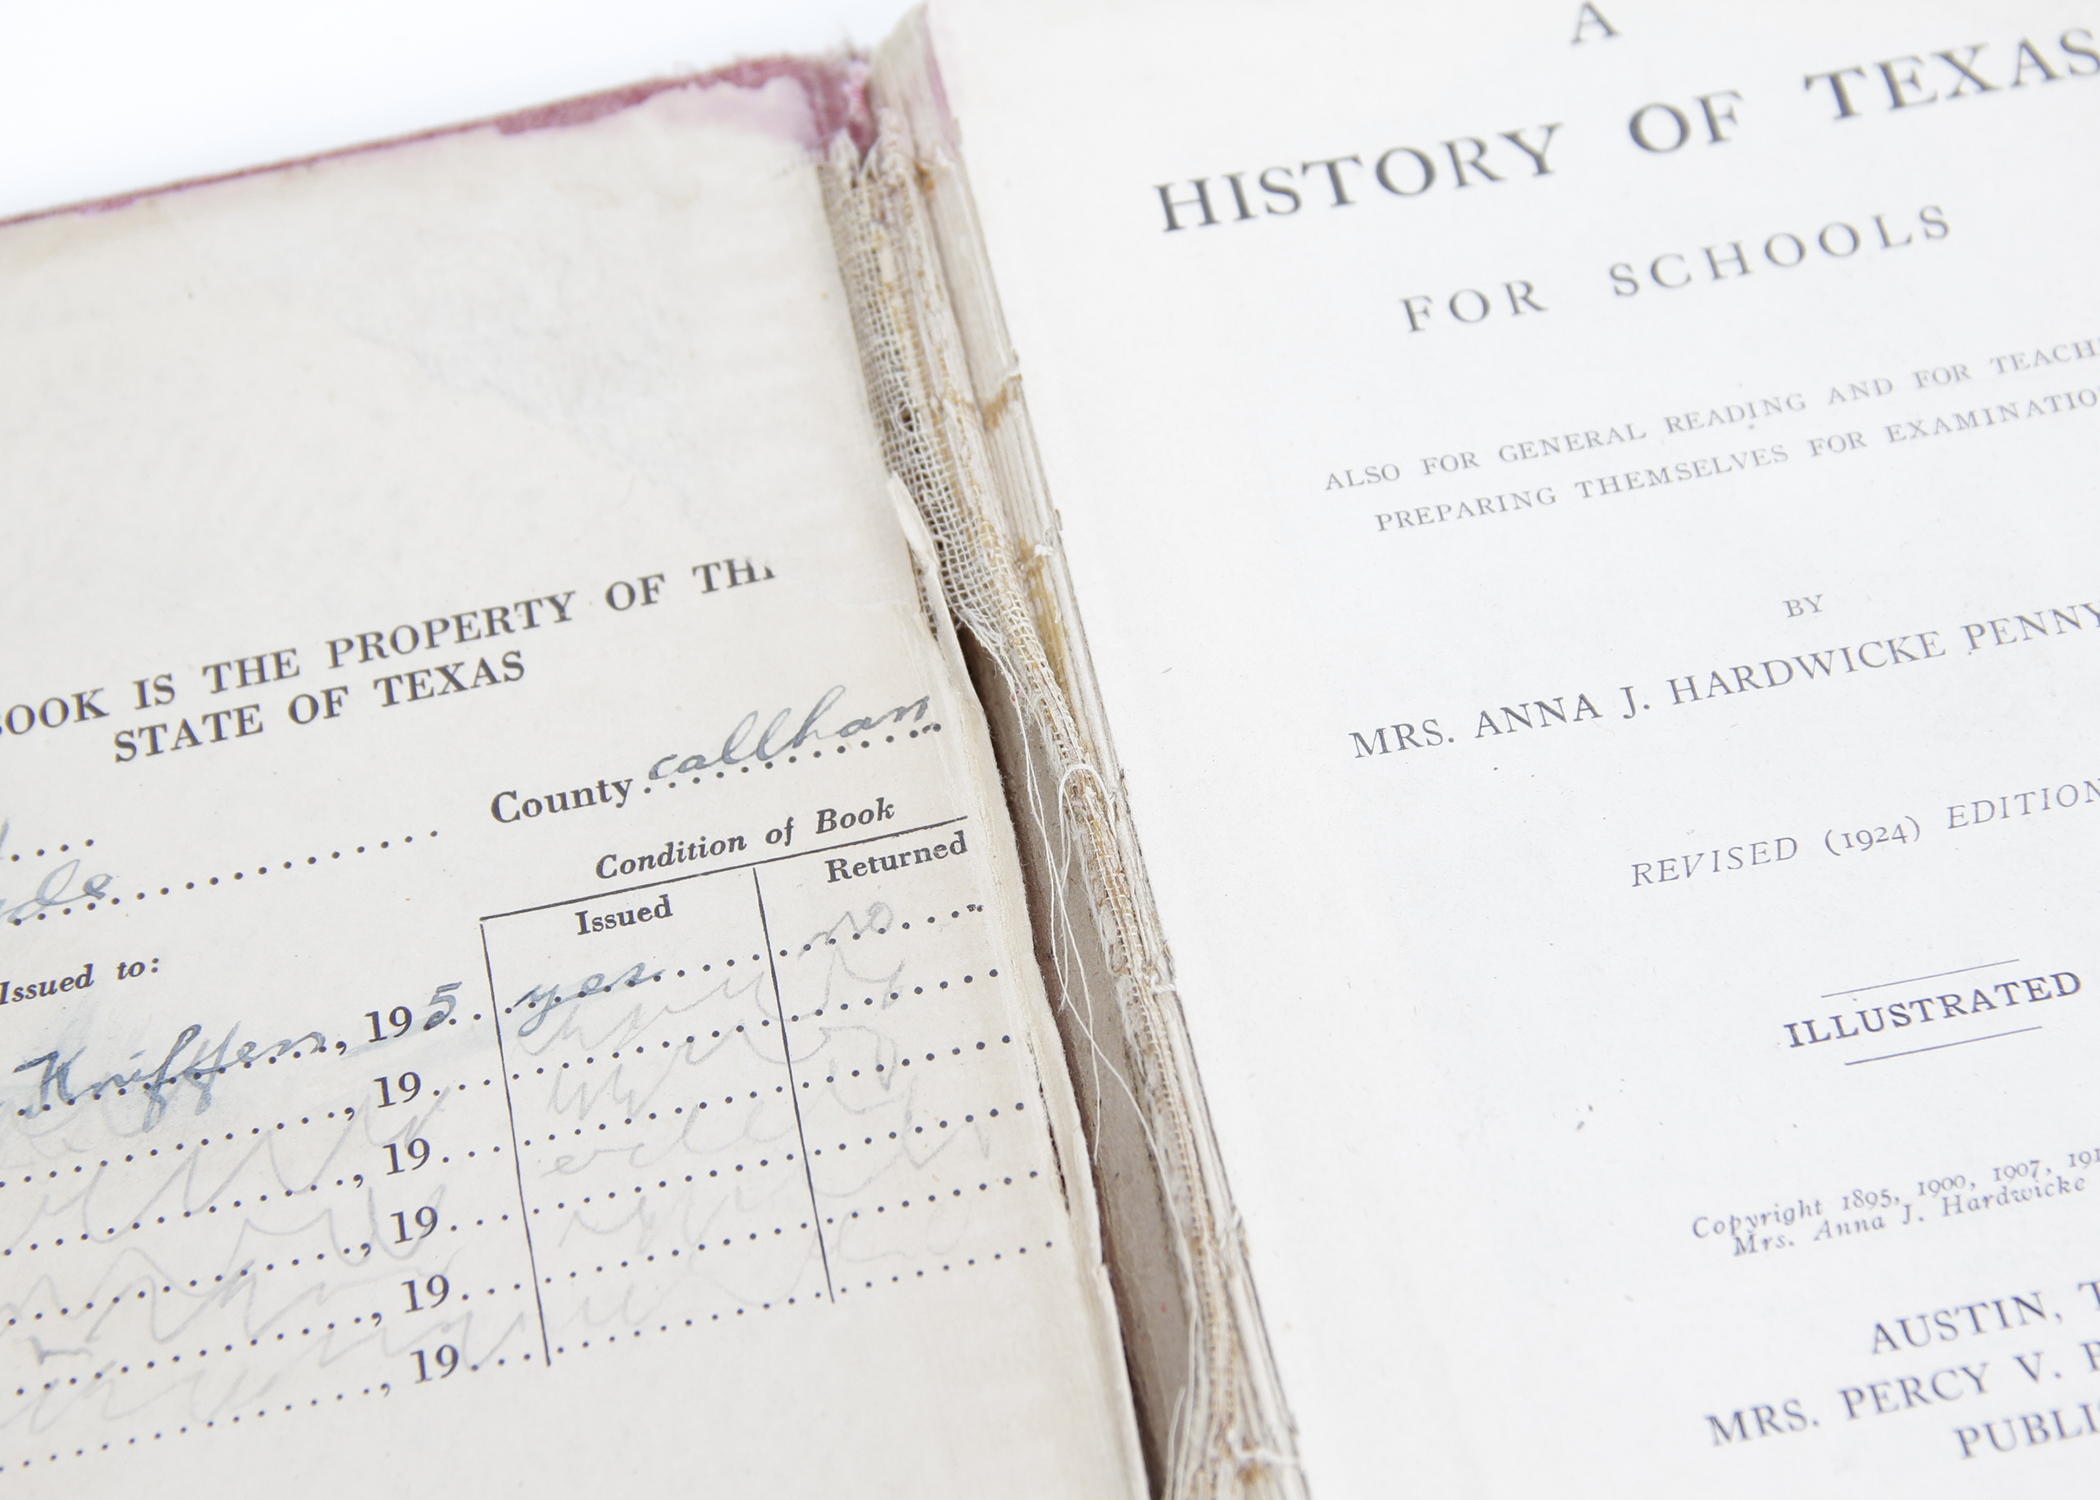 BOOK IS THE PROPERTY OF THE
STATE OF TEXAS
County callhan
Condition of Book
Issued to:
Issued Returned
Kniffen, 195 yes no
, 19
, 19
, 19
, 19
, 19
A
HISTORY OF TEXAS
FOR SCHOOLS
ALSO FOR GENERAL READING AND FOR TEACH
PREPARING THEMSELVES FOR EXAMINATIO
BY
MRS. ANNA J. HARDWICKE PENNY
REVISED (1924) EDITION
ILLUSTRATED
Copyright 1895, 1900, 1907, 191
Mrs. Anna J. Hardwicke
AUSTIN, T
MRS. PERCY V. P
PUBLI